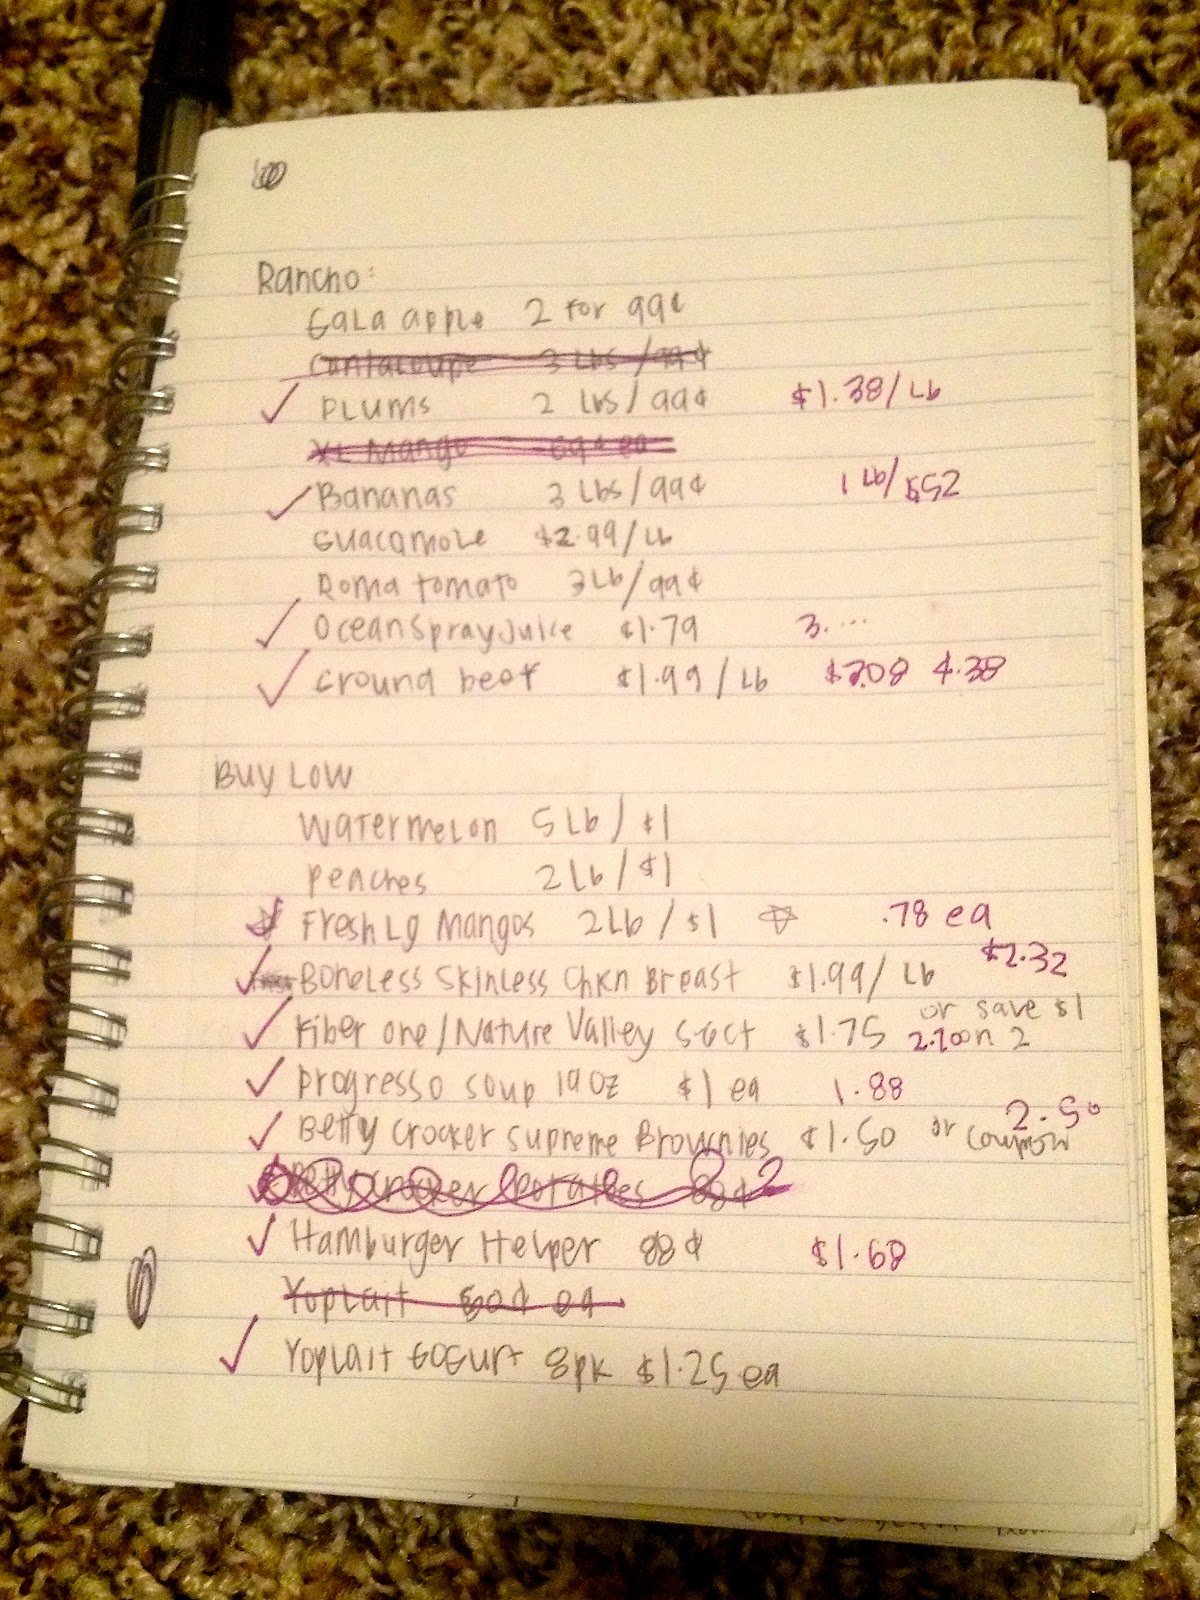 Rancho:
Gala apple 2 for 99¢
Cantaloupe 3 Lbs/99¢
Plums 2 Lbs/99¢ $1.38/Lb
XL Mango 69¢ ea
Bananas 3 Lbs/99¢ 1 Lb/
Guacamole $2.99/Lb
Roma tomato 3Lb/99¢
Ocean Spray Juice $1.79 3....
Ground beef $1.99/Lb 4.38
Buy Low
Watermelon 5 Lb/$1
Peaches 2 Lb/$1
Fresh Lg Mangos 2Lb/$1 .78 ea
Boneless Skinless Chkn Breast $1.99/Lb $2.32
Fiber one/Nature Valley 5-6ct $1.75 or save $1
on 2
Progresso soup 19oz $1 ea 1.88
Betty Crocker Supreme Brownies $1.50 or coupon 2.50
Betty Crocker Potatoes 88¢ 2
Hamburger Helper 88¢ $1.68
Yoplait 60¢ ea
Yoplait Gogurt 8pk $1.25 ea